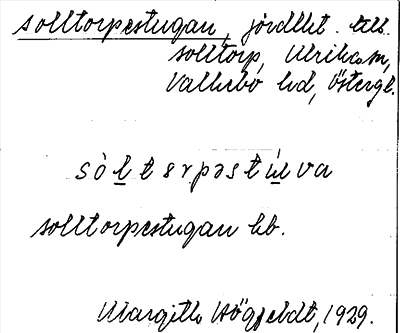 solltorpestugan, jordlht. till.
solltorp, Ulrika sn,
Vallebo hd, Östergl.
sòlterpəstúva
solltorpestugan hb.
Margith Högfeldt, 1929.